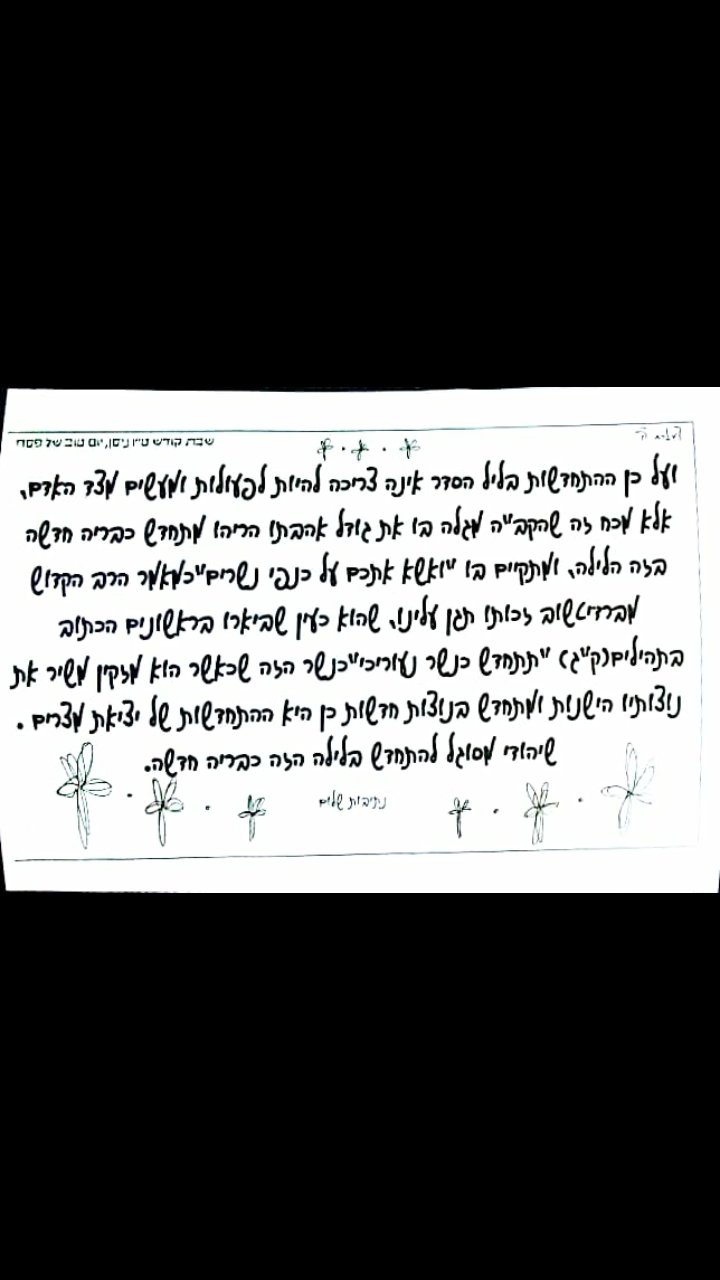 שבת קודש ט״ו ניסן, יום טוב של פסח
ועל כן ההתחדשות בליל הסדר אינה צריכה להיות לפעולות ומעשים מצד האדם,
אלא מכח זה שהקב״ה מגלה בו את גודל אהבתו הריהו מתחדש כבריה חדשה
בזה הלילה, ומתקיים בו ״ואשא אתכם על כנפי נשרים״ כמאמר הרב הקדוש
מברדיטשוב זכותו תגן עלינו, שהוא כעין שביארו בראשונים הכתוב
בתהילים (ק״ג) ״תתחדש כנשר נעוריכי״ כנשר הזה שכאשר הוא מזקין משיר את
נוצותיו הישנות ומתחדש בנוצות חדשות כן היא ההתחדשות של יציאת מצרים.
שיהודי מסוגל להתחדש בלילה הזה כבריה חדשה.
נתיבות שלום